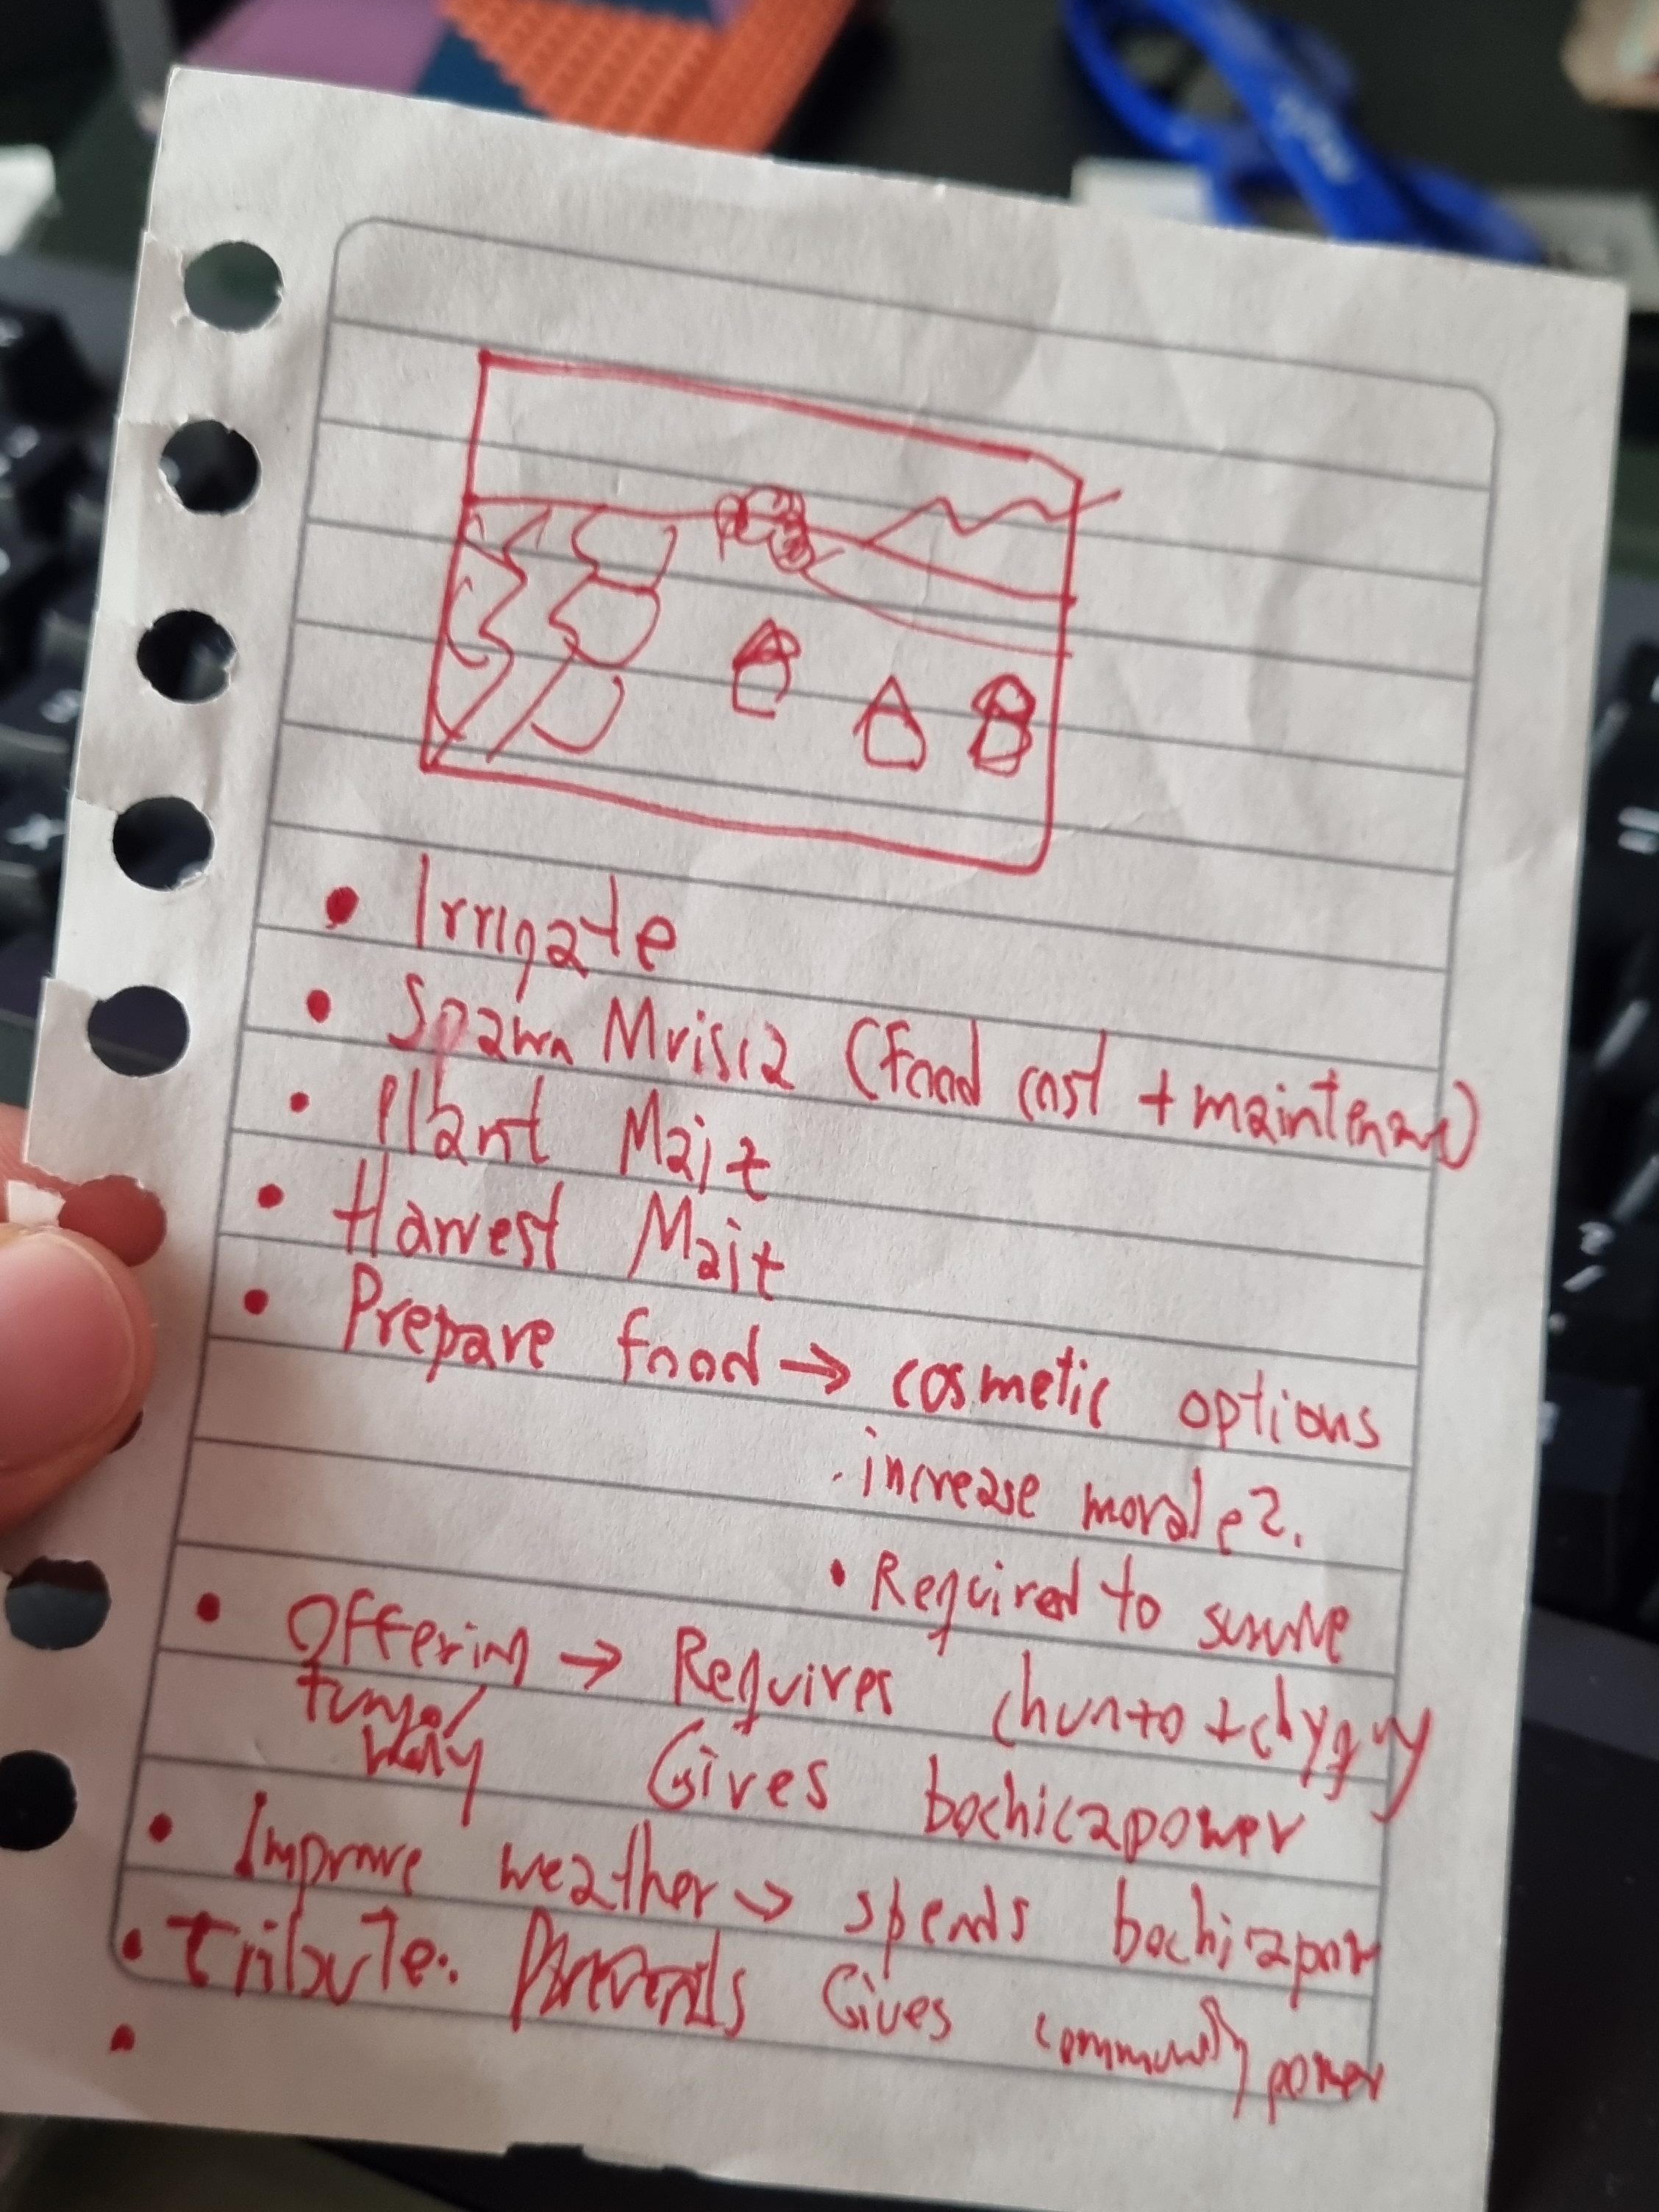 • Irrigate
• Spawn Mvisca (Food cost + maintenance)
• Plant Maiz
• Harvest Maiz
• Prepare food → cosmetic options
· increase morale?.
• Required to survive
• Offering → Requires chunso + chyquy
Gives bochicapower
• Improve weather → spends bochicapower
• Tribute: Gives community power
•